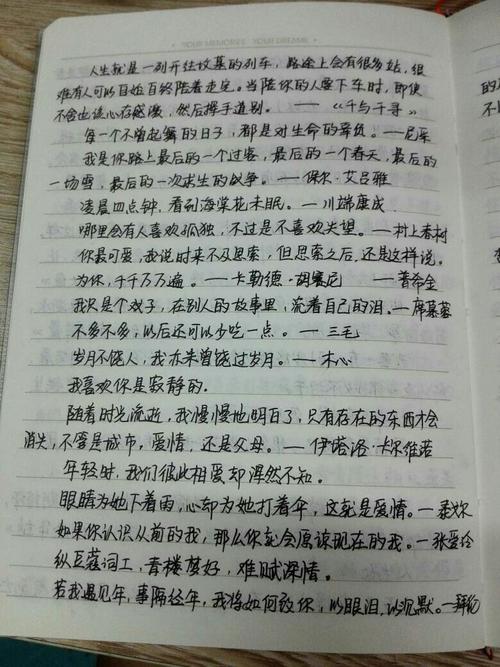 YOUR MEMORIES YOUR DREAM
人生就是一列开往坟墓的列车，路途上会有很多站，很
难有人可以自始至终陪着走完。当陪你的人要下车时，即使
不舍也该心存感激，然后挥手道别。——《千与千寻》
每一个不曾起舞的日子，都是对生命的辜负。—尼采
我是你路上最后的一个过客，最后的一个春天，最后的
一场雪，最后的一次求生的战争。—保尔·艾吕雅
凌晨四点钟，看到海棠花未眠。—川端康成
哪里会有人喜欢孤独，不过是不喜欢失望。—村上春树
你最可爱，我说时来不及思索，但思索之后，还是这样说。
为你，千千万万遍。—卡勒德·胡赛尼 —普希金
我只是个戏子，在别人的故事里，流着自己的泪。—席慕蓉
不多不多，以后还可以少吃一点。—三毛
岁月不饶人，我亦未曾饶过岁月。—木心
我喜欢你是寂静的.
随着时光流逝，我慢慢地明白了，只有存在的东西才会
消失，不管是城市，爱情，还是父母。—伊塔洛·卡尔维诺
年轻时，我们彼此相爱却浑然不知。
眼睛为她下着雨，心却为她打着伞，这就是爱情。—泰戈尔
如果你认识从前的我，那么你就会原谅现在的我。—张爱玲
纵豆蔻词工，青楼梦好，难赋深情。
若我遇见年，事隔经年，我将如何致你，以眼泪，以沉默。—拜伦